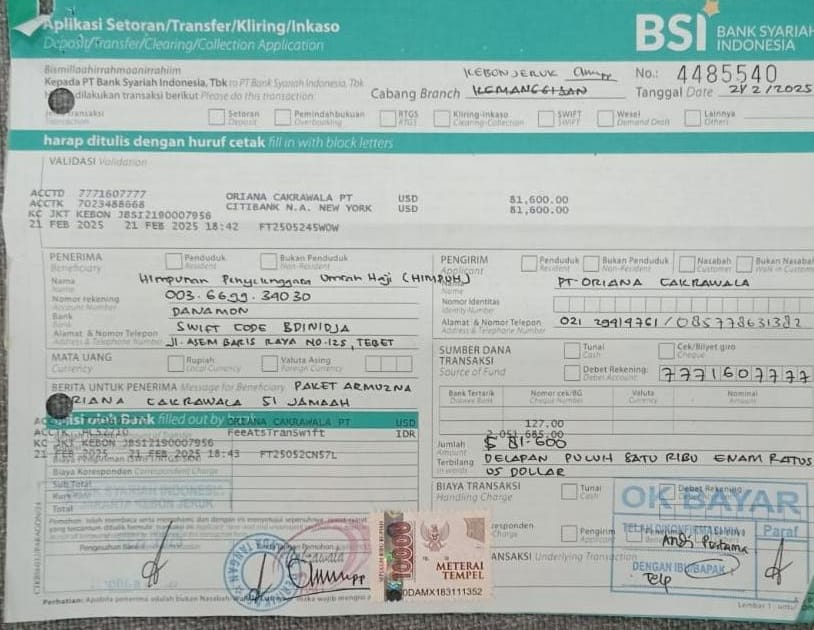 Aplikasi Setoran/Transfer/Kliring/Inkaso
Deposit/Transfer/Clearing/Collection Application
BSI BANK SYARIAH INDONESIA
Bismillaahirrahmaanirrahiim
Kepada PT Bank Syariah Indonesia, Tbk to PT Bank Syariah Indonesia, Tbk
dilakukan transaksi berikut Please do this transaction:
KEBON JERUK
Cabang Branch KEMANGGISAN
No.: 4485540
Tanggal Date 21/2/2025
Transaksi Transaction
Setoran Deposit
Pemindahbukuan Overbooking
RTGS RTGS
Kliring-Inkaso Clearing-Collection
SWIFT SWIFT
Wesel Demand Draft
Lainnya Others
harap ditulis dengan huruf cetak fill in with block letters
VALIDASI Validation
ACCTD 7771607777 ORIANA CAKRAWALA PT USD 81,600.00
ACCTK 7023488668 CITIBANK N.A. NEW YORK USD 81,600.00
KC JKT KEBON JBSI2190007956
21 FEB 2025 21 FEB 2025 18:42 FT2505245WOW
PENERIMA Beneficiary
Penduduk Resident
Bukan Penduduk Non-Resident
Nama Name Himpunan Penyelenggara Umrah Haji (HIMPUH)
Nomor rekening Account Number 003.6699.34030
Bank Bank DANAMON
SWIFT CODE BDINIDJA
Alamat & Nomor Telepon Address & Telephone Number Jl. ASEM BARIS RAYA NO.125, TEBET
MATA UANG Currency
Rupiah Local Currency
Valuta Asing Foreign Currency
BERITA UNTUK PENERIMA Message for Beneficiary PAKET ARMUZNA
ORIANA CAKRAWALA 51 JAMAAH
PENGIRIM Applicant
Penduduk Resident
Bukan Penduduk Non-Resident
Nasabah Customer
Bukan Nasabah Walk in Customer
Nama Name PT. ORIANA CAKRAWALA
Nomor Identitas Identity Number
Alamat & Nomor Telepon Address & Telephone Number 021 29414761 / 085778631382
SUMBER DANA TRANSAKSI Source of Fund
Tunai Cash
Cek/Bilyet giro Cheque
Debet Rekening: Debet Account: 7771607777
Bank Tertarik Drawee Bank
Nomor cek/BG Cheque Number
Valuta Currency
Nominal Amount
Jumlah Amount $ 81.600
Terbilang in words DELAPAN PULUH SATU RIBU ENAM RATUS
US DOLLAR
diisi oleh Bank filled out by bank
ORIANA CAKRAWALA PT USD 127.00
FeeAtsTranSwift IDR 2,051,685.00
KC JKT KEBON JBSI2190007956
21 FEB 2025 21 FEB 2025 18:43 FT25052CN57L
Biaya Koresponden Correspondent Charge
Sub Total
Total
BIAYA TRANSAKSI Handling Charge
Tunai Cash
Debet Rekening
Pengirim
TRANSAKSI Underlying Transaction
OK BAYAR
TELAH DIKONFIRMASI
Paraf
Andi Pratama
DENGAN IBU/BAPAK
Telp
10000
METERAI TEMPEL
0DAMX183111352
Lembar 1 : untuk